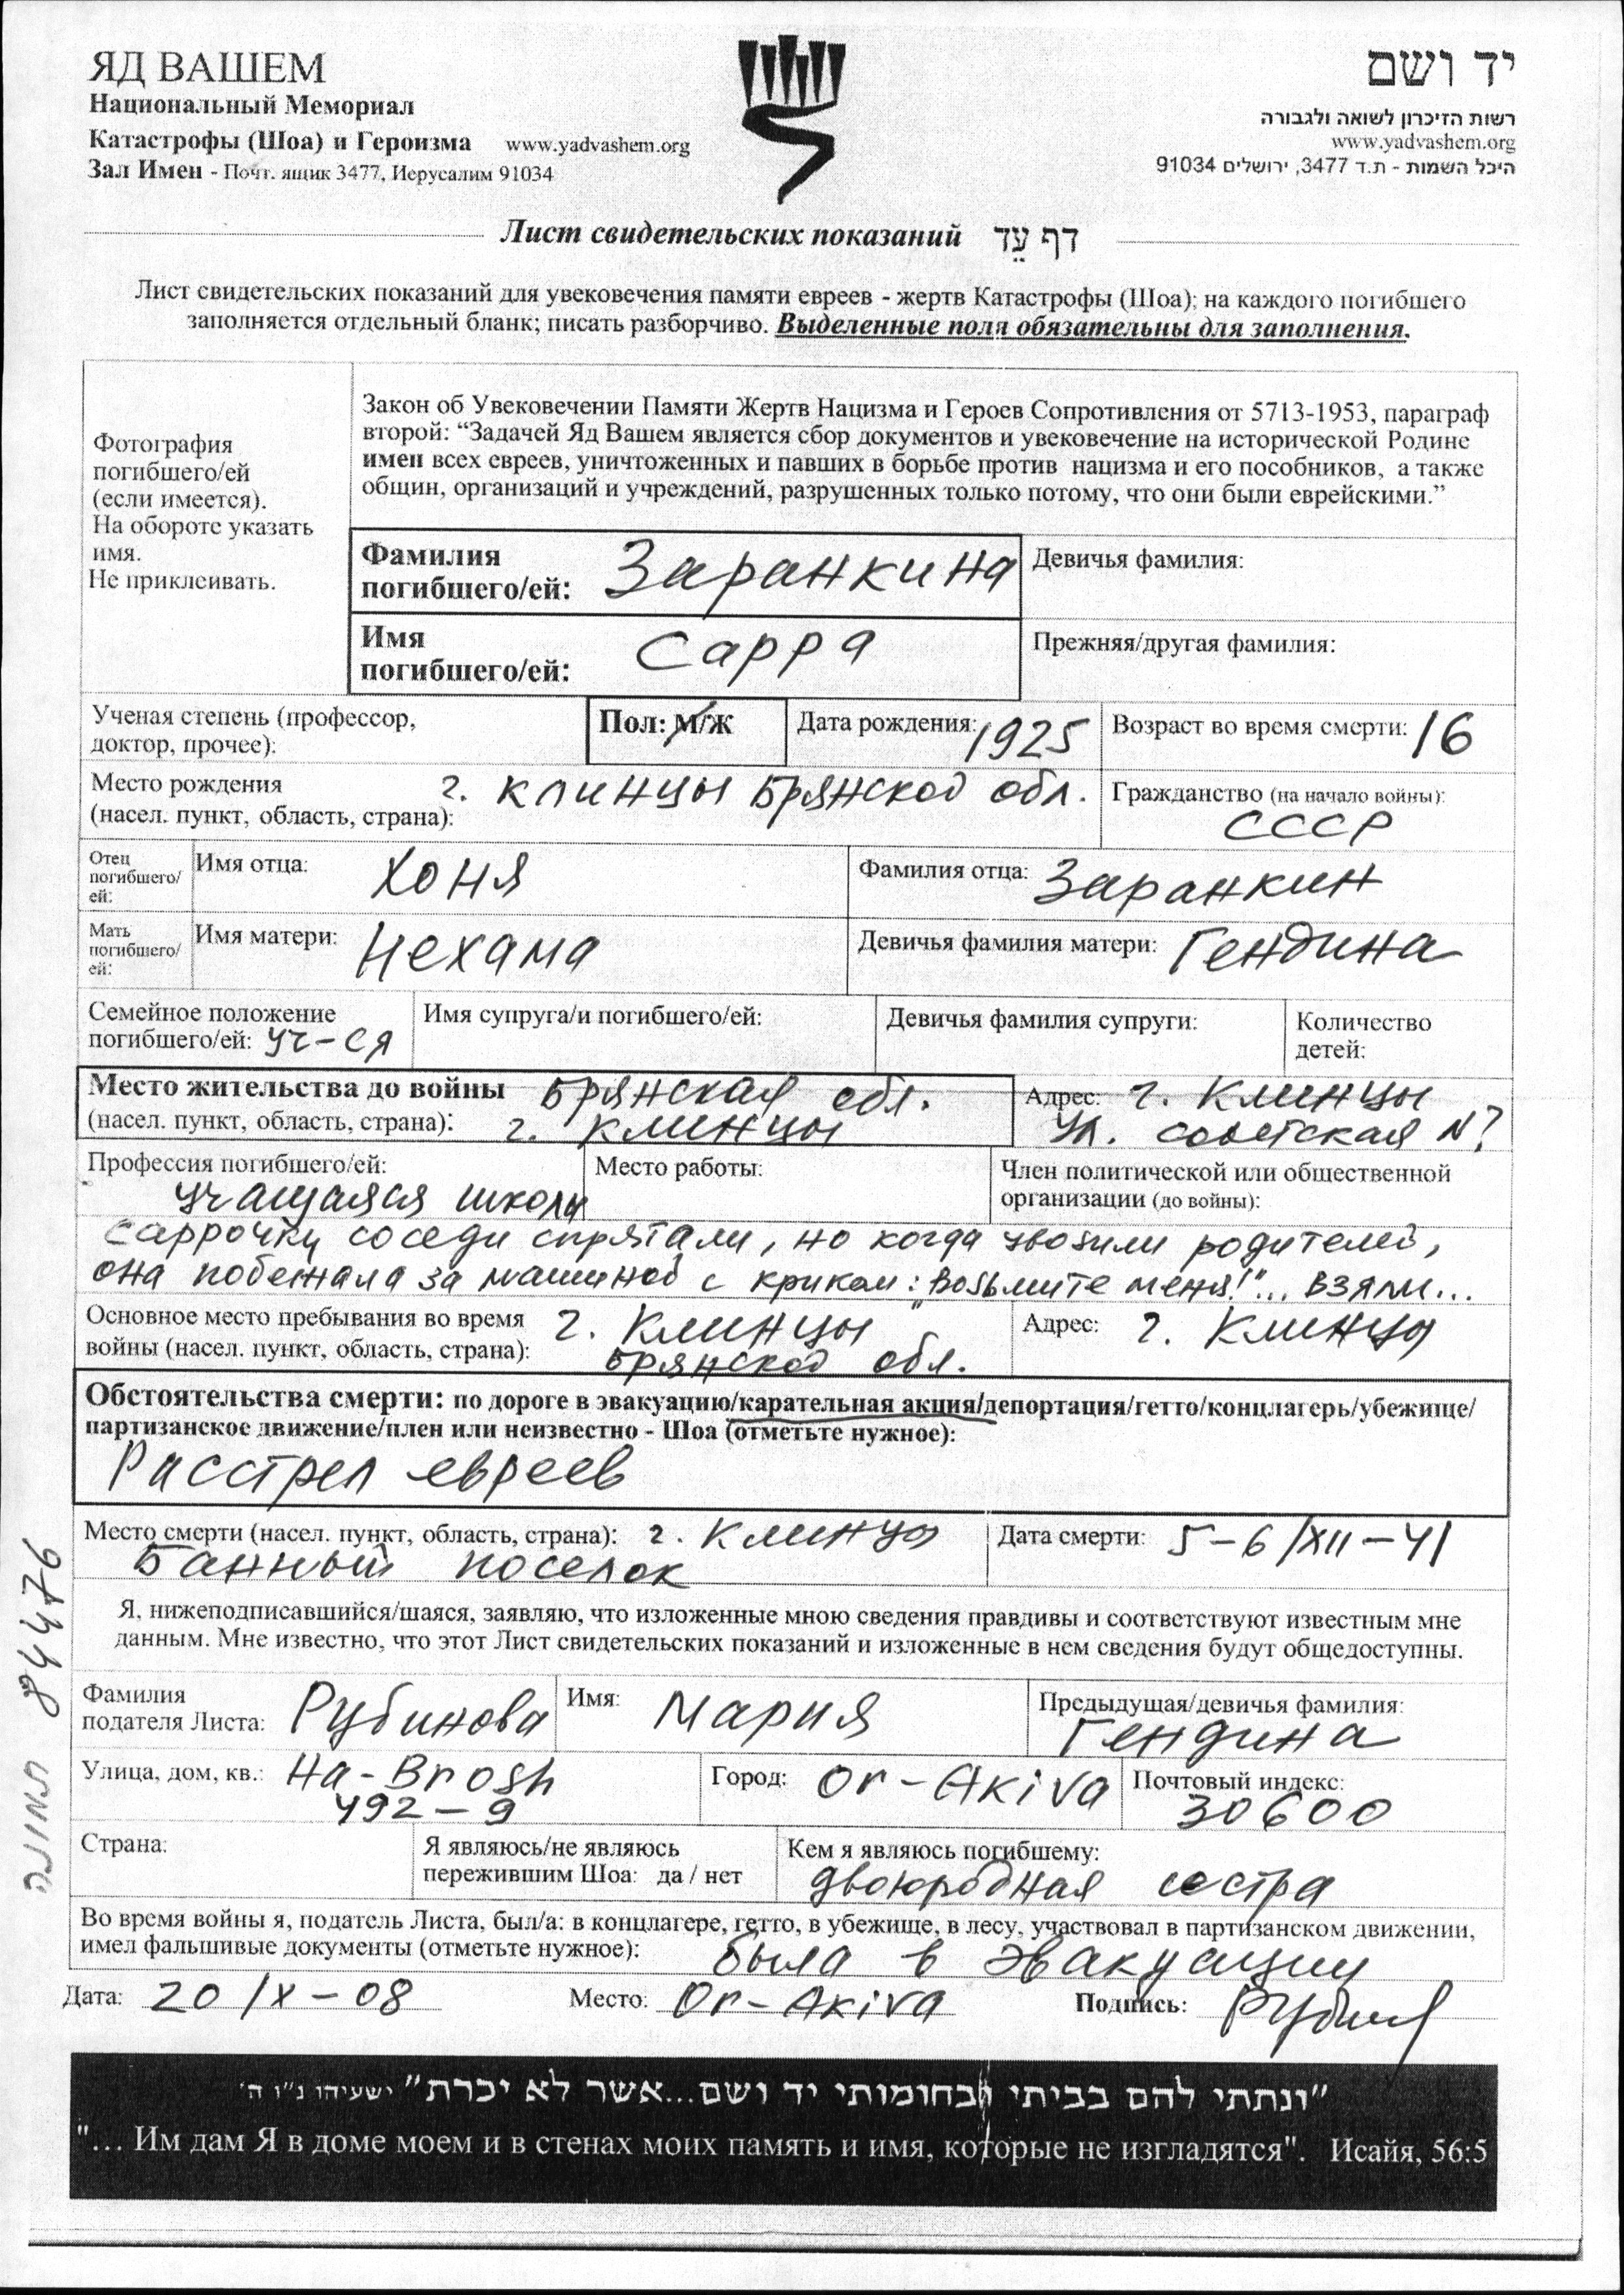 ЯД ВАШЕМ
Национальный Мемориал
Катастрофы (Шоа) и Героизма www.yadvashem.org
Зал Имен - Почт. ящик 3477, Иерусалим 91034
יד ושם
רשות הזיכרון לשואה ולגבורה
www.yadvashem.org
היכל השמות - ת.ד 3477, ירושלים 91034
Лист свидетельских показаний דף עֵד
Лист свидетельских показаний для увековечения памяти евреев - жертв Катастрофы (Шоа); на каждого погибшего
заполняется отдельный бланк; писать разборчиво. Выделенные поля обязательны для заполнения.
Фотография
погибшего/ей
(если имеется).
На обороте указать
имя.
Не приклеивать.
Закон об Увековечении Памяти Жертв Нацизма и Героев Сопротивления от 5713-1953, параграф
второй: “Задачей Яд Вашем является сбор документов и увековечение на исторической Родине
имен всех евреев, уничтоженных и павших в борьбе против нацизма и его пособников, а также
общин, организаций и учреждений, разрушенных только потому, что они были еврейскими.”
Фамилия
погибшего/ей: Заранкина
Девичья фамилия:
Имя
погибшего/ей: Сарра
Прежняя/другая фамилия:
Ученая степень (профессор,
доктор, прочее):
Пол: М/Ж
Дата рождения: 1925
Возраст во время смерти: 16
Место рождения г. Клинцы Брянской обл.
(насел. пункт, область, страна):
Гражданство (на начало войны):
СССР
Отец
погибшего/
ей:
Имя отца: Хоня
Фамилия отца: Заранкин
Мать
погибшего/
ей:
Имя матери: Нехама
Девичья фамилия матери: Гендина
Семейное положение
погибшего/ей: уч-ся
Имя супруга/и погибшего/ей:
Девичья фамилия супруги:
Количество
детей:
Место жительства до войны Брянская обл.
(насел. пункт, область, страна): г. Клинцы
Адрес: г. Клинцы
ул. Советская N?
Профессия погибшего/ей:
учащаяся школы
Место работы:
Член политической или общественной
организации (до войны):
Саррочку соседи спрятали, но когда увозили родителей,
она побежала за машиной с криком: "Возьмите меня!"... Взяли...
Основное место пребывания во время г. Клинцы
войны (насел. пункт, область, страна): Брянской обл.
Адрес: г. Клинцы
Обстоятельства смерти: по дороге в эвакуацию/карательная акция/депортация/гетто/концлагерь/убежище/
партизанское движение/плен или неизвестно - Шоа (отметьте нужное):
Расстрел евреев
Место смерти (насел. пункт, область, страна): г. Клинцы
Банный поселок
Дата смерти: 5-6/XII-41
Я, нижеподписавшийся/шаяся, заявляю, что изложенные мною сведения правдивы и соответствуют известным мне
данным. Мне известно, что этот Лист свидетельских показаний и изложенные в нем сведения будут общедоступны.
Фамилия
подателя Листа: Рубинова
Имя: Мария
Предыдущая/девичья фамилия:
Гендина
Улица, дом, кв.: Ha-Brosh
492-9
Город: Or-Akiva
Почтовый индекс:
30600
Страна:
Я являюсь/не являюсь
пережившим Шоа: да / нет
Кем я являюсь погибшему:
двоюродная сестра
Во время войны я, податель Листа, был/а: в концлагере, гетто, в убежище, в лесу, участвовал в партизанском движении,
имел фальшивые документы (отметьте нужное): была в эвакуации
Дата: 20/X-08 Место: Or-Akiva Подпись: Рубин
תמונה 84476
"ונתתי להם בביתי ובחומותי יד ושם...אשר לא יכרת" ישעיהו נ"ו ה'
"... Им дам Я в доме моем и в стенах моих память и имя, которые не изгладятся". Исайя, 56:5